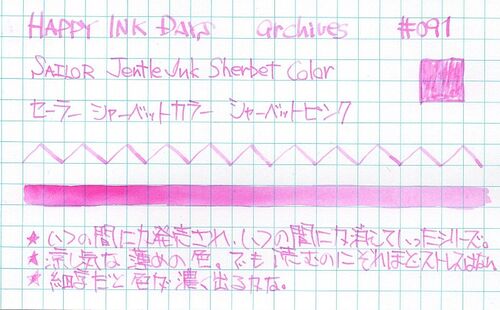 HAPPY INK DAYS archives #091
SAILOR Jentle Ink Sherbet Color
セーラー シャーベットカラー シャーベットピンク
★いつの間にか発売され、いつの間にか消えていったシリーズ。
★涼し気な薄めの色。でも読むのにそれほどストレスはない
★細字だと色が濃く出るかな。